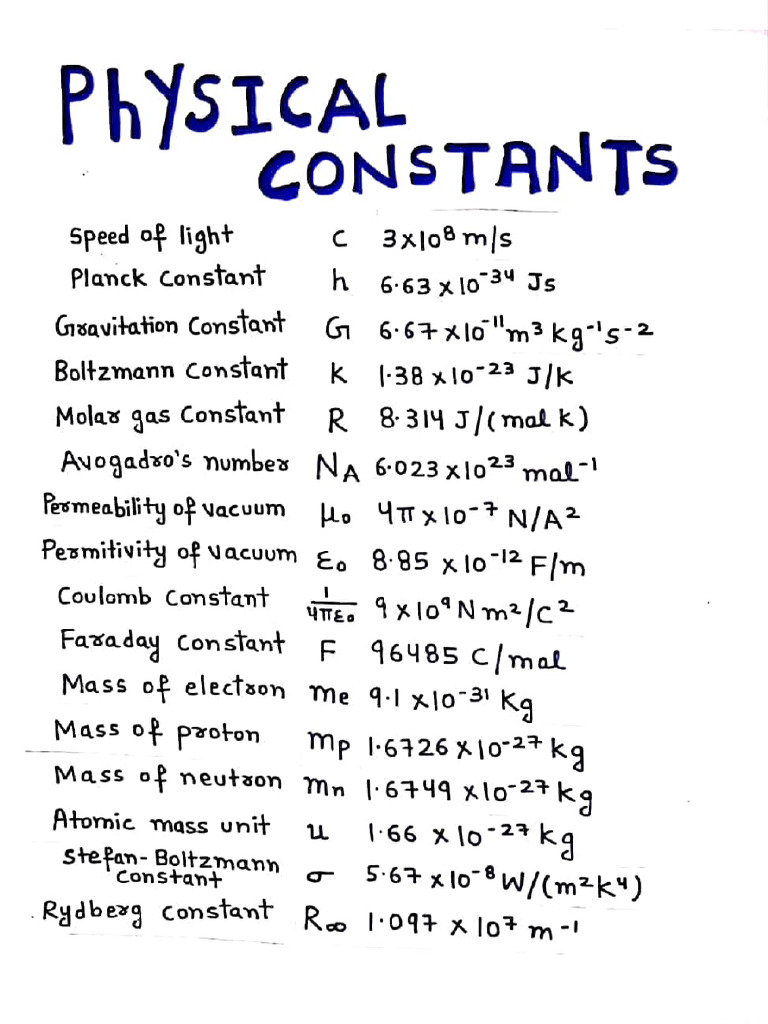 PhYSICAL
CONSTANTS
Speed of light C 3×10⁸ m/s
Planck Constant h 6.63 × 10⁻³⁴ Js
Gravitation Constant G 6.67 ×10⁻¹¹ m³ kg⁻¹s⁻²
Boltzmann Constant k 1.38 ×10⁻²³ J/K
Molar gas Constant R 8.314 J/(mol k)
Avogadro's number NA 6.023 ×10²³ mol⁻¹
Permeability of vacuum μ₀ 4π × 10⁻⁷ N/A²
Permitivity of vacuum ε₀ 8.85 × 10⁻¹² F/m
Coulomb Constant 1/4πε₀ 9 ×10⁹ N m²/C²
Faraday Constant F 96485 C/mol
Mass of electron me 9.1 ×10⁻³¹ Kg
Mass of proton mp 1.6726 ×10⁻²⁷ kg
Mass of neutron mn 1.6749 ×10⁻²⁷ kg
Atomic mass unit u 1.66 × 10⁻²⁷ kg
Stefan-Boltzmann
Constant σ 5.67 ×10⁻⁸ W/(m²k⁴)
Rydberg constant R∞ 1.097 × 10⁷ m⁻¹